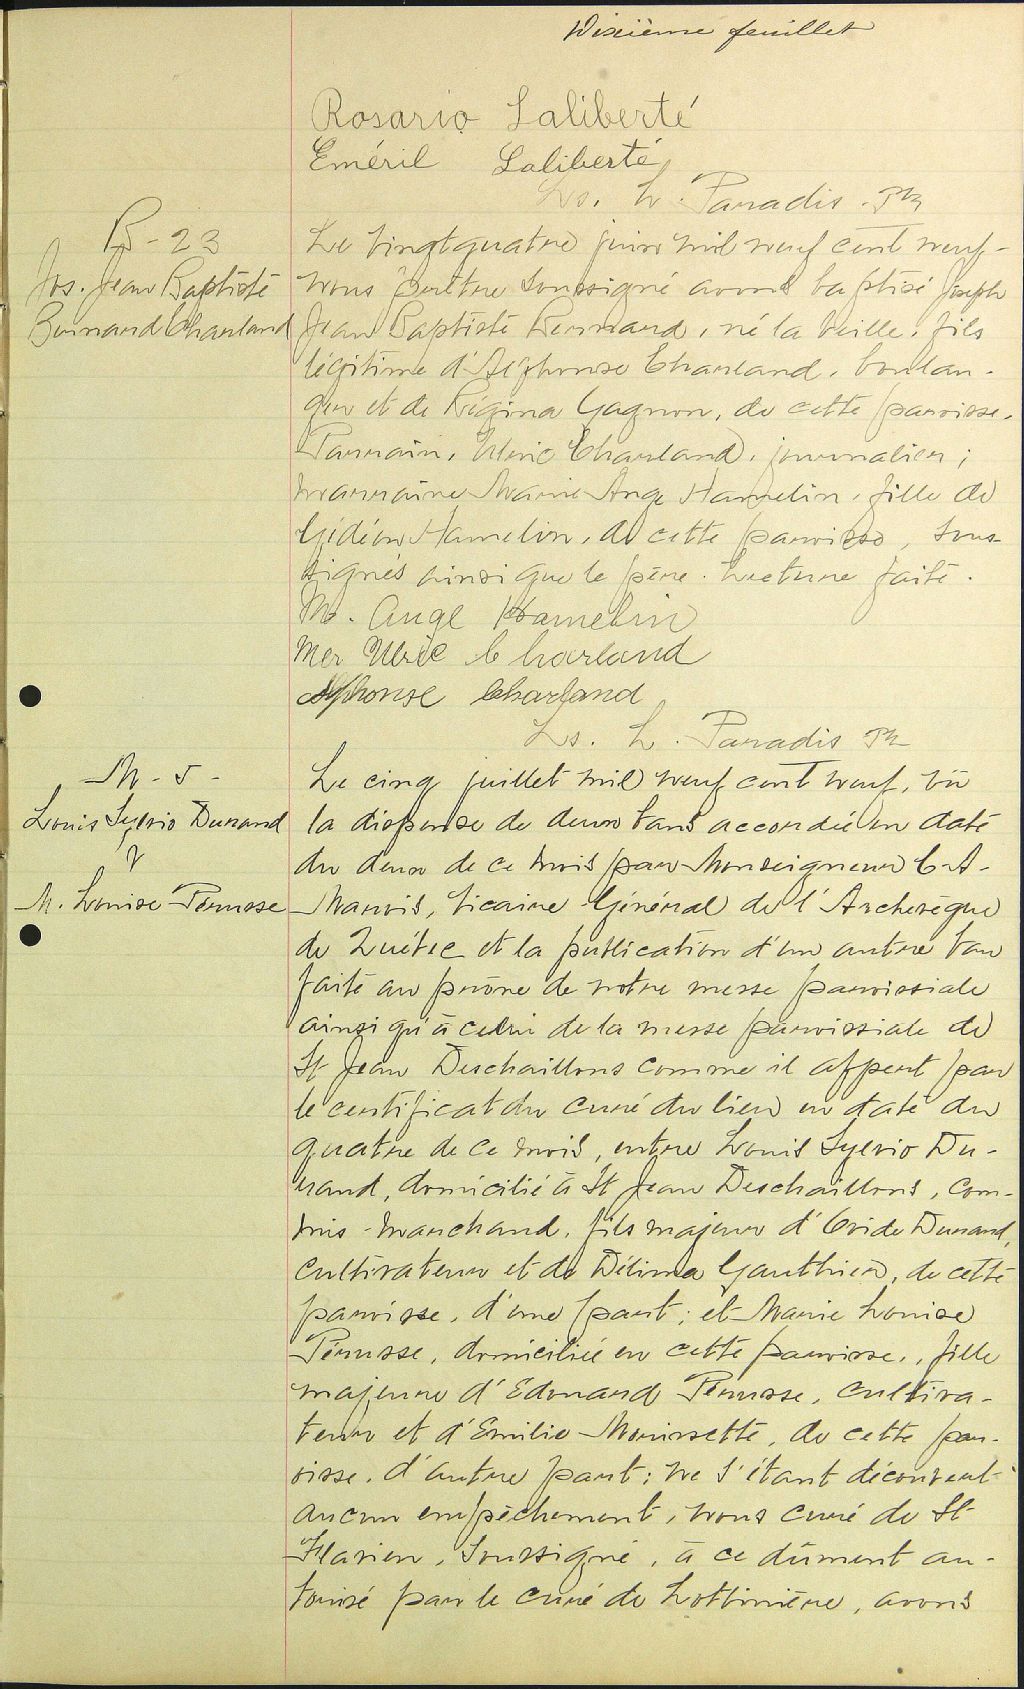 Dixième feuillet
Rosario Laliberté
Eméril Laliberté
Ls. L. Paradis Ptr
B-23
Jos. Jean Baptiste
Bernard Charland
Le vingtquatre juin mil neuf cent neuf-
nous prêtre soussigné avons baptisé Joseph
Jean Baptiste Bernard, né la veille, fils
légitime d'Alphonse Charland, boulan-
ger et de Régina Gagnon, de cette paroisse.
Parrain, Ulric Charland, journalier;
marraine Marie Ange Hamelin, fille de
Gédéon Hamelin, de cette paroisse, sous-
signés ainsi que le père. Lecture faite.
M. Ange Hamelin
Mer Ulric Charland
Alphonse Charland
Ls. L. Paradis Ptr
M-5-
Louis Sylvio Durand
&
M. Louise Pérusse
Le cinq juillet mil neuf cent neuf, vû
la dispense de deux bans accordée en date
du deux de ce mois par Monseigneur C-A-
Marois, Vicaire Général de l'Archevêque
de Québec et la publication d'un autre ban
faite au prône de notre messe paroissiale
ainsi qu'à celui de la messe paroissiale de
St Jean Deschaillons comme il appert par
le certificat du curé du lieu en date du
quatre de ce mois, entre Louis Sylvio Du-
rand, domicilié à St Jean Deschaillons, com-
mis-marchand, fils majeur d'Ovide Durand,
cultivateur et de Délima Gauthier, de cette
paroisse, d'une part; et Marie Louise
Pérusse, domiciliée en cette paroisse, fille
majeure d'Edouard Pérusse, cultiva-
teur et d'Emilie Mourssette, de cette par-
oisse, d'autre part; ne s'étant découvert
aucun empêchement, nous curé de St-
Flavien, soussigné, à ce dûment au-
torisé par le curé de Lotbinière, avons